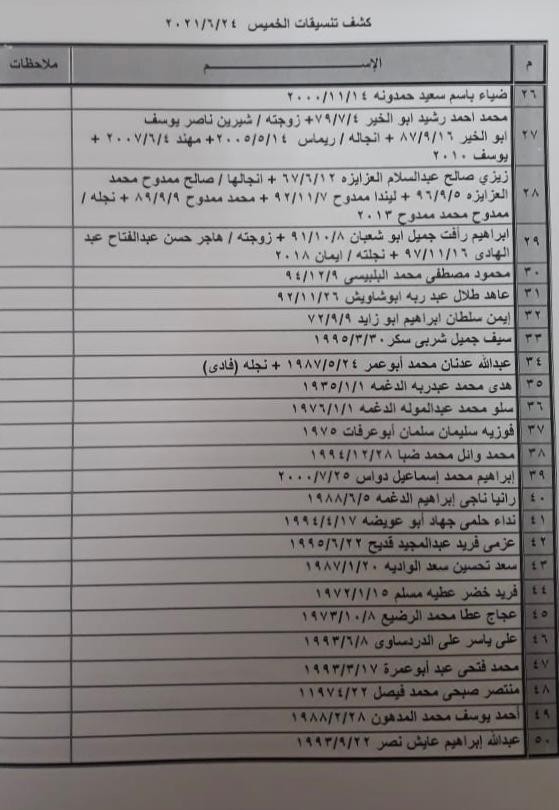 كشف تنسيقات الخميس ٢٠٢١/٦/٢٤
م الإســـــم ملاحظات
٢٦ ضياء باسم سعيد حمدونه ٢٠٠٠/١١/١٤
محمد احمد رشيد ابو الخير ٧٩/٧/٤+ زوجته / شيرين ناصر يوسف
٢٧ ابو الخير ٨٧/٩/١٦ + انجاله / ريماس ٢٠٠٥/٥/١٤+ مهند ٢٠٠٧/٦/٤ +
يوسف ٢٠١٠
زيزي صالح عبدالسلام العزايزه ٦٧/٦/١٢ + انجالها / صالح ممدوح محمد
٢٨ العزايزه ٩٦/٩/٥ + ليندا ممدوح ٩٢/١١/٧ + محمد ممدوح ٨٩/٩/٩ + نجله /
ممدوح محمد ممدوح ٢٠١٣
٢٩ ابراهيم رأفت جميل ابو شعبان ٩١/١٠/٨ + زوجته / هاجر حسن عبدالفتاح عبد
الهادى ٩٧/١١/١٦ + نجلته / ايمان ٢٠١٨
٣٠ محمود مصطفى محمد البلبيسي ٩٤/١٢/٩
٣١ عاهد طلال عبد ربه ابوشاويش ٩٢/١١/٢٦
٣٢ إيمن سلطان ابراهيم ابو زايد ٧٢/٩/٩
٣٣ سيف جميل شربى سكر ١٩٩٥/٣/٣٠
٣٤ عبدالله عدنان محمد أبوعمر ١٩٨٧/٥/٢٤ + نجله (فادى)
٣٥ هدى محمد عبدربه الدغمه ١٩٣٥/١/١
٣٦ سلو محمد عبدالموله الدغمه ١٩٧٦/١/١
٣٧ فوزيه سليمان سلمان أبوعرفات ١٩٧٥
٣٨ محمد وائل محمد ضبا ١٩٩٤/١٢/٢٨
٣٩ إبراهيم محمد إسماعيل دواس ٢٠٠٠/٧/٢٥
٤٠ رانيا ناجى إبراهيم الدغمه ١٩٨٨/٦/٥
٤١ نداء حلمى جهاد أبو عويضه ١٩٩٤/٤/١٧
٤٢ عزمى فريد عبدالمجيد قديح ١٩٩٥/٦/٢٢
٤٣ سعد تحسين سعد الواديه ١٩٨٧/١/٢٠
٤٤ فريد خضر عطيه مسلم ١٩٧٢/١/١٥
٤٥ عجاج عطا محمد الرضيع ١٩٧٣/١٠/٨
٤٦ على ياسر على الدردساوى ١٩٩٣/٦/٨
٤٧ محمد فتحى عبد أبوعمرة ١٩٩٣/٣/١٧
٤٨ منتصر صبحى محمد فيصل ١١٩٧٤/٢٢
٤٩ أحمد يوسف محمد المدهون ١٩٨٨/٢/٢٨
٥٠ عبدالله إبراهيم عايش نصر ١٩٩٣/٩/٢٢